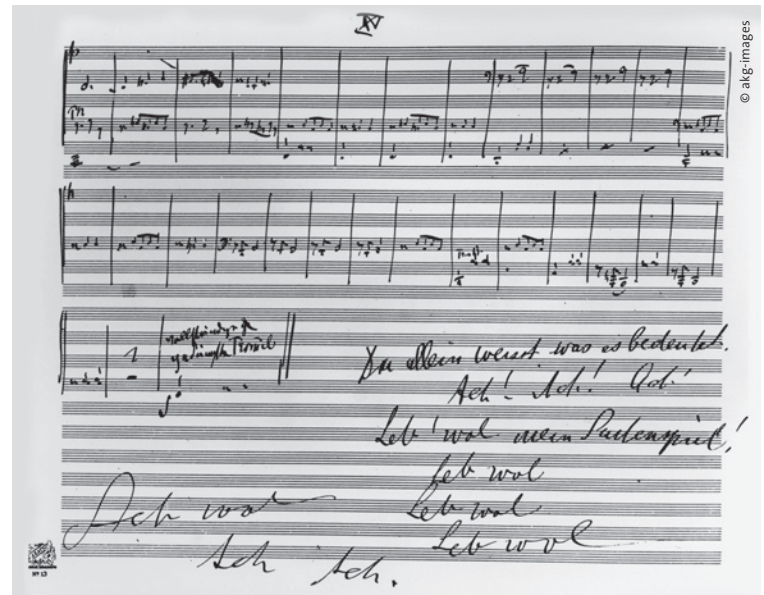 © akg-images
gedämpfte Trommel
Du allein weisst was es bedeutet.
Ach! Ach! Ach!
Leb' wol mein Saitenspiel!
Leb wol
Leb wol
Leb wol
Ach wol
Ach Ach.
Nº 13